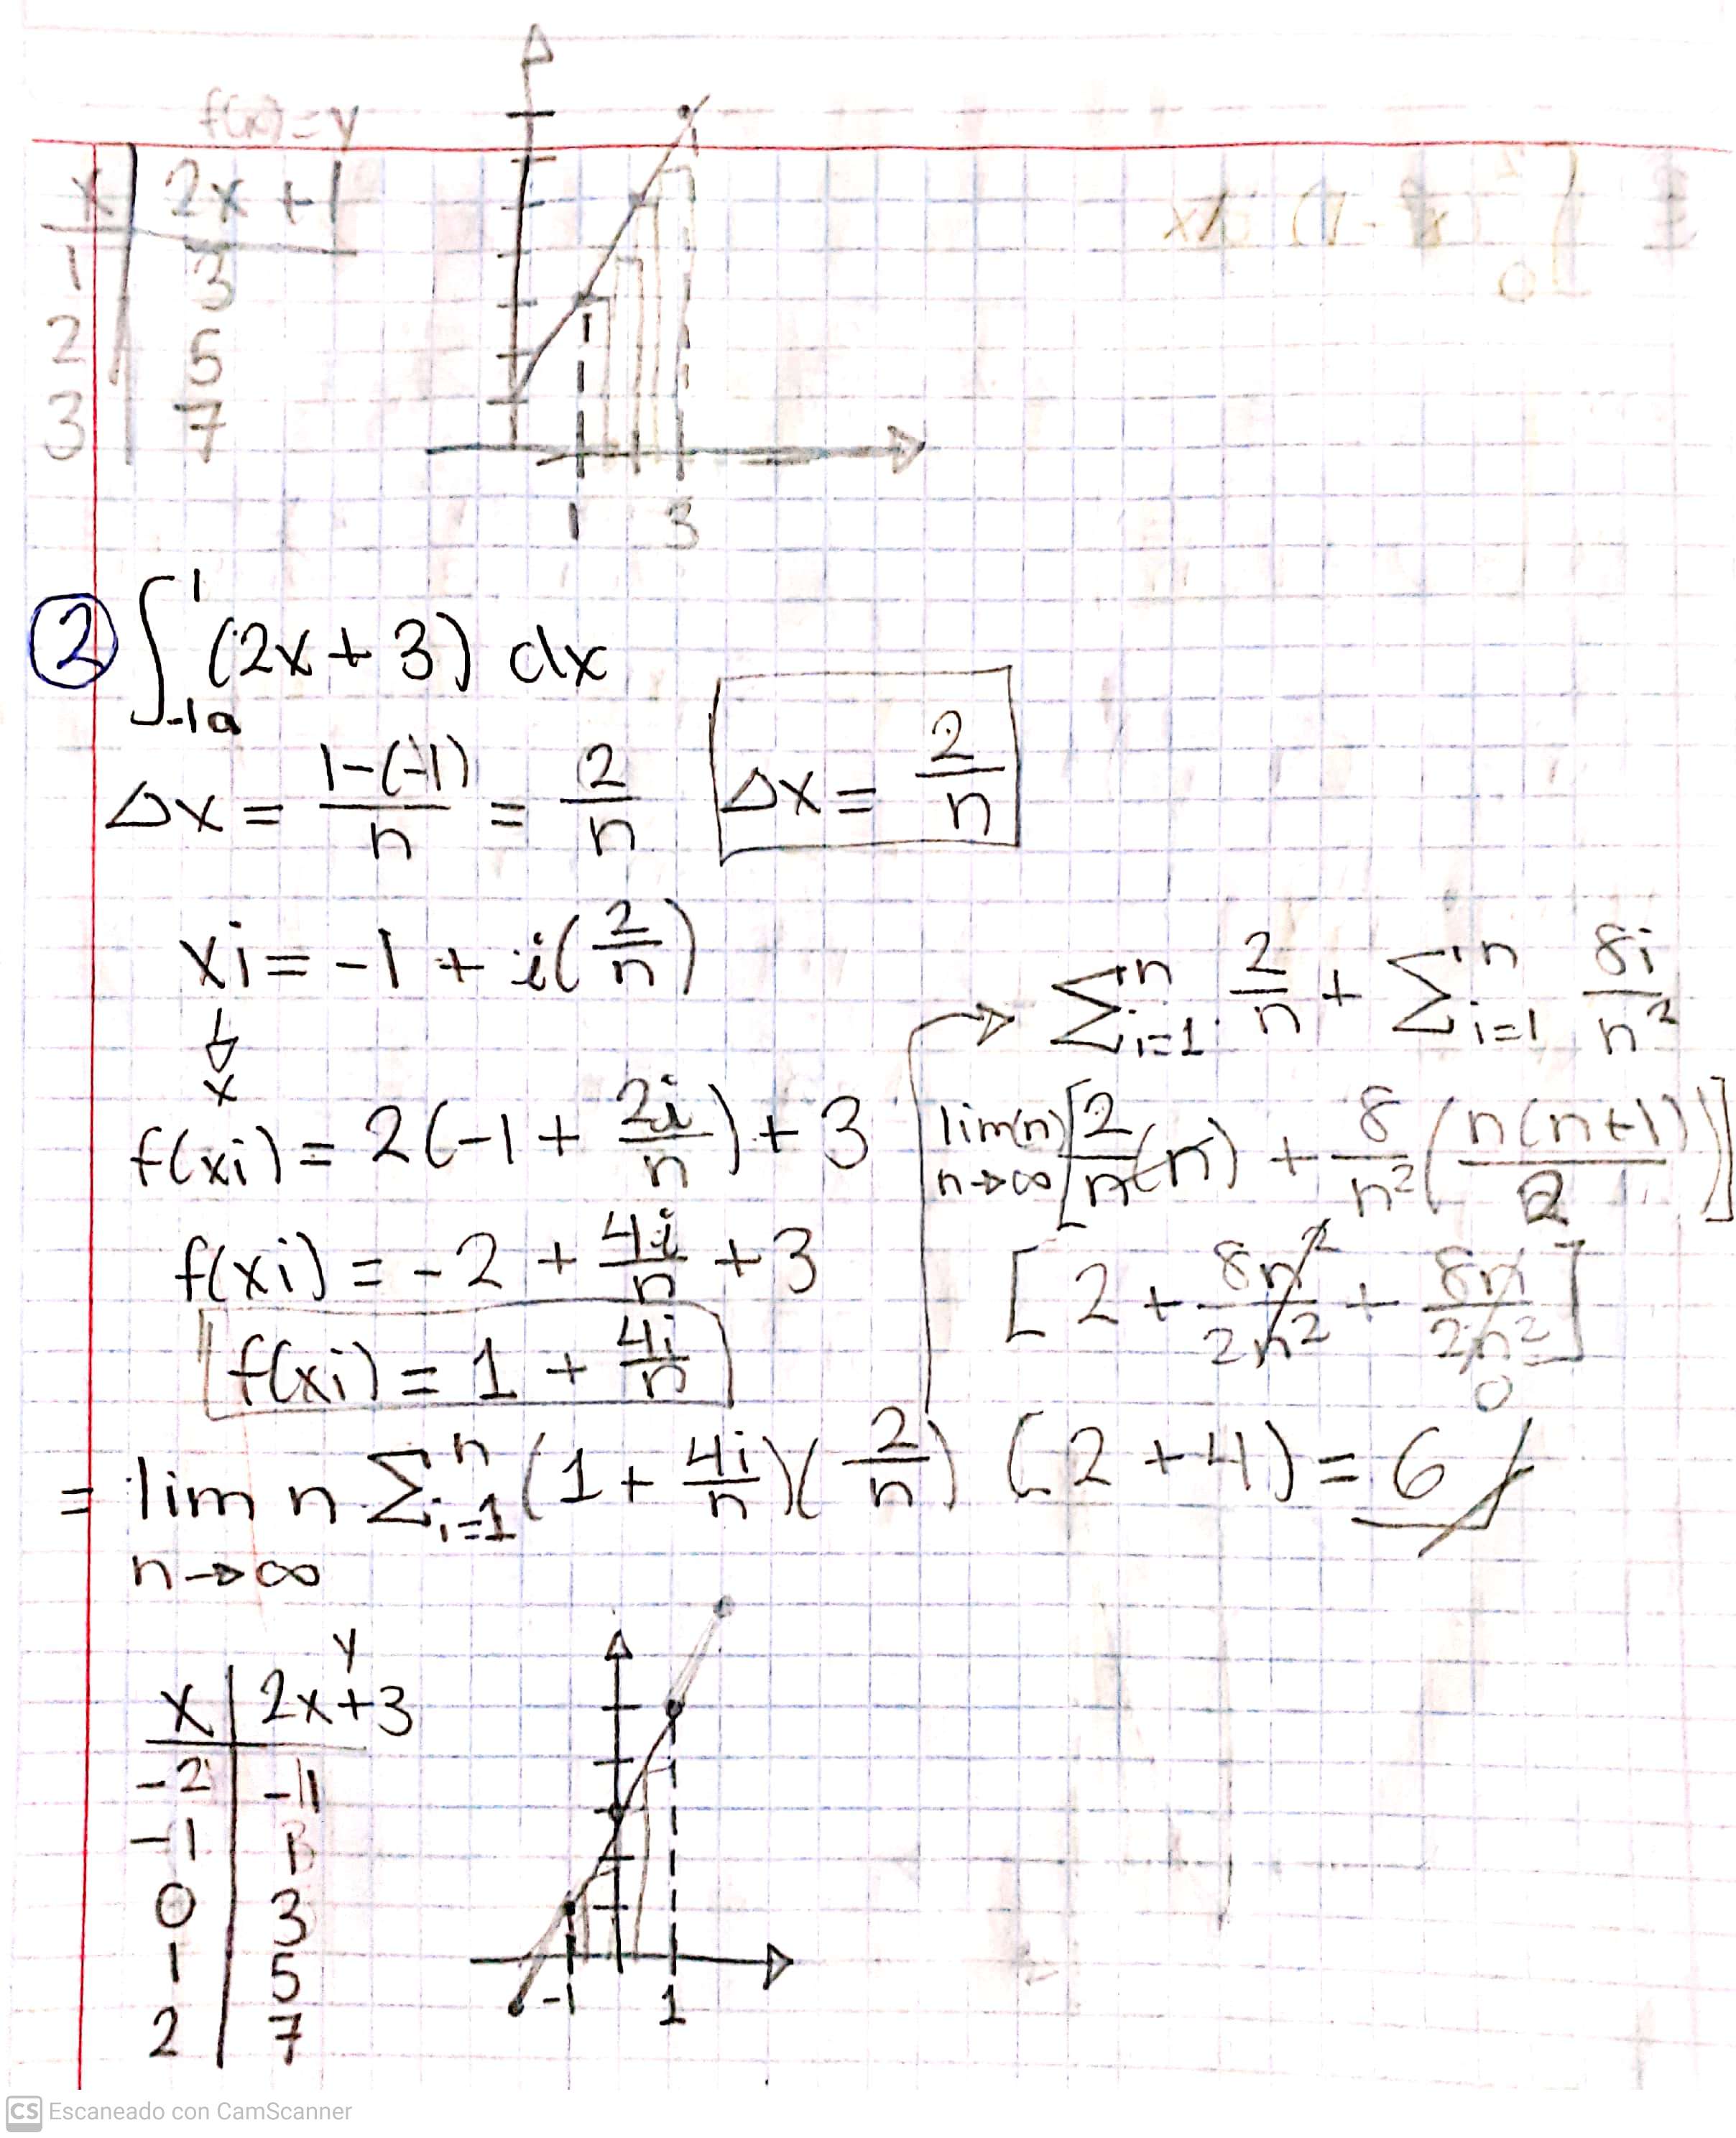 f(x)=y
x | 2x + 1
1 | 3
2 | 5
3 | 7
1 3
② ∫₋₁ₐ¹ (2x + 3) dx
Δx = (1-(-1))/n = 2/n
Δx = 2/n
xi = -1 + i(2/n)
x
f(xi) = 2(-1 + 2i/n) + 3
f(xi) = -2 + 4i/n + 3
f(xi) = 1 + 4i/n
= lim n Σⁿᵢ₌₁ (1 + 4i/n)(2/n)
n→∞
Σⁿᵢ₌₁ 2/n + Σⁿᵢ₌₁ 8i/n²
lim(n) [2/n (n) + 8/n² (n(n+1)/2)]
n→∞
[2 + 8n²/2n² + 8n/2n²]
0
(2 + 4) = 6
y
x | 2x+3
-2 |
-1 |
0 | 3
1 | 5
2 | 7
-1 1
CS Escaneado con CamScanner